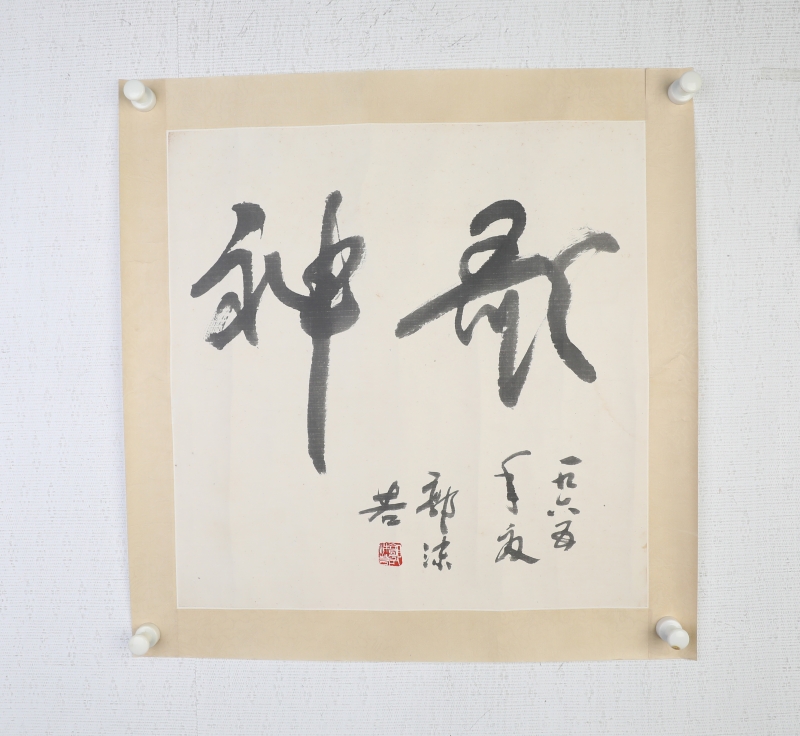 神
一九六五
年夏
郭沫
若